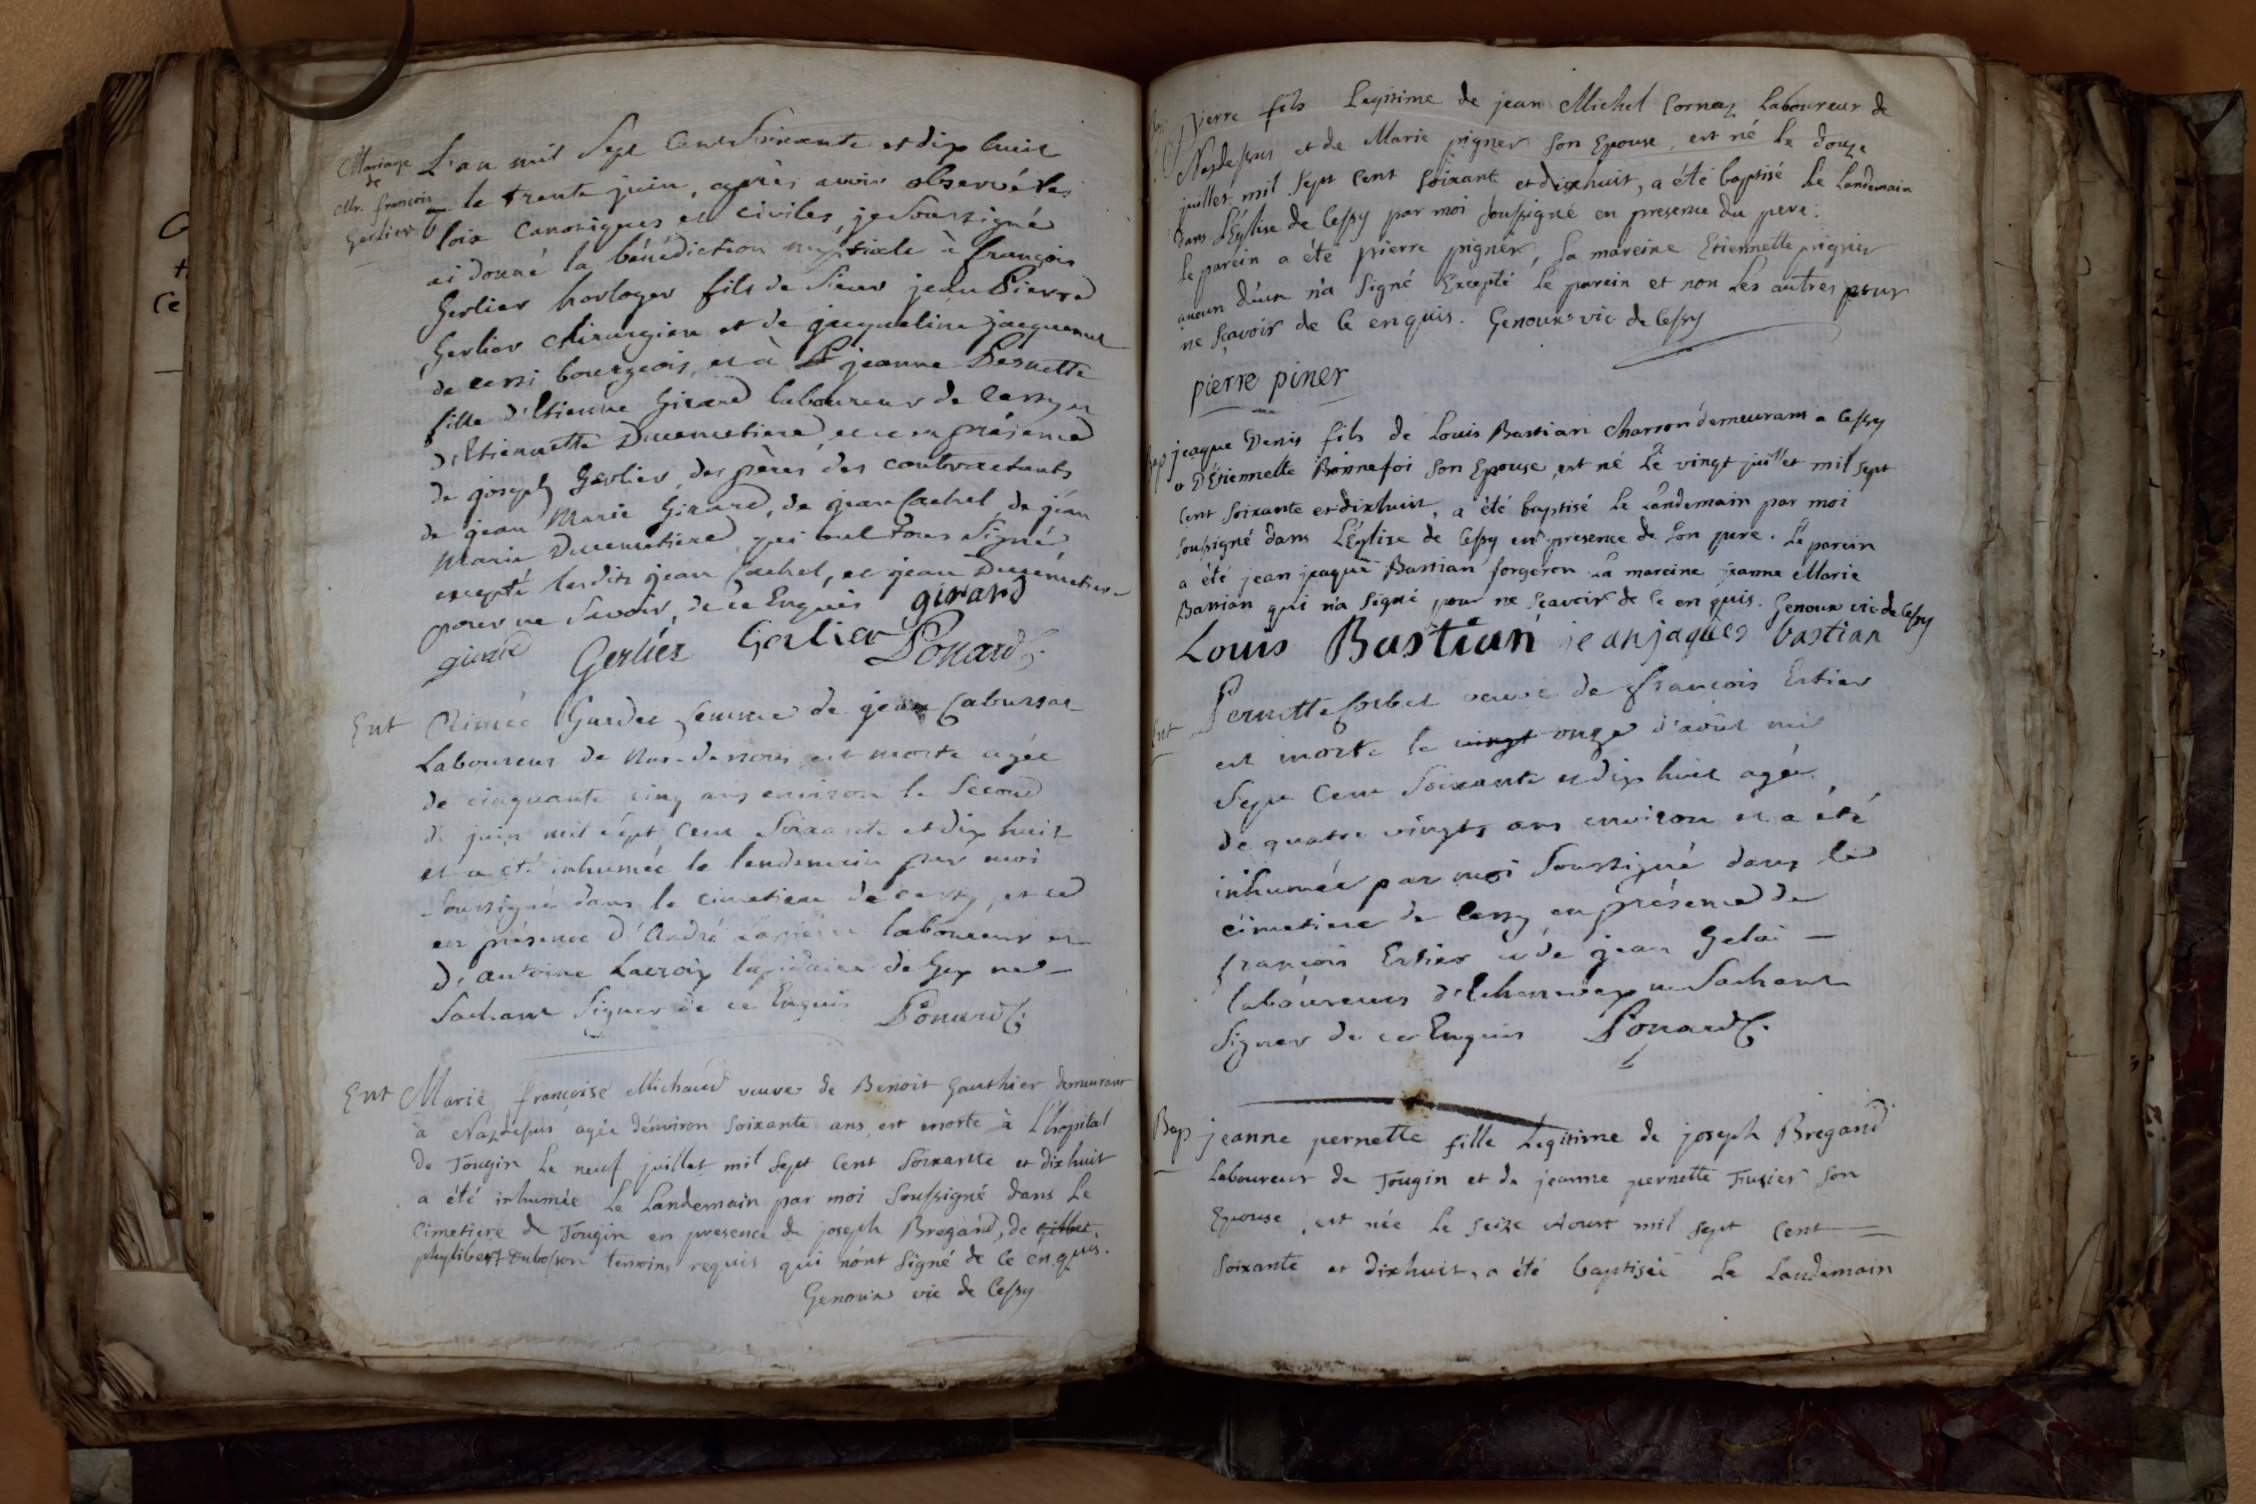 Mariage
de
Mr. françois
Gerlier
L'an mil Sept Cent Soixante et dix huit
le trente juin, après avoir observé les
loix Canoniques et civiles, je Soussigné
ai donné la bénédiction nuptiale à françois
Gerlier horloger fils de Sieur jean Pierre
Gerlier chirurgien et de jacqueline jacquemet
de cessi bourgeois, et à jeanne Pernette
fille d'Etienne Girard laboureur de Cessy et
d'Etiennette Ducimetiere, et ce en présence
de joseph Gerlier, des pères des contractants
de jean Marie Girard, de jean Cachet, de jean
Marie Ducimetiere, qui ont Tous Signé
excepté lesdits jean Cachet, et jean Ducimetiere
pour ne Savoir, de ce Enquis girard
girard Gerlier Gerlier Ponard C.
Ent Aimée Gardet femme de jean Cabursat
Laboureur de Nas-dessous est morte agée
de cinquante cinq ans environ le Second
de juin mil sept Cent Soixante et dix huit
et a été inhumée le lendemain par moi
Soussigné dans le cimetiere de Cessy, et ce
en présence d'André laboureur et
d'antoine Lacroix lapidaire de Gex ne
Sachant Signer de ce Enquis Ponard C.
Ent Marie françoise Michaud veuve de Benoit Gauthier demeurant
à Nazdessus agée d'environ Soixante ans, est morte à L'hopital
de Tougin Le neuf juillet mil Sept Cent Soixante et dixhuit
a été inhumée Le Landemain par moi Soussigné dans Le
Cimetiere de Tougin en presence de joseph Bregand, de Gilbet
phylibert Dubosson temoins requis qui n'ont Signé de Ce enquis.
Genoux vic de Cessy
Bap pierre fils Legitime de jean Michel Cornaz Laboureur de
Nazdessus et de Marie pigner Son Epouse, est né Le douze
juillet mil Sept Cent Soixante et dixhuit, a été baptisé Le Landemain
dans L'Eglise de Cessy par moi Soussigné en presence du pere.
Le parein a été pierre pigner, La mareine Etiennette pignier
aucun d'eux n'a Signé Excepté Le parein et non Les autres pour
ne Sçavoir de Ce enquis. Genoux vic de Cessy
pierre piner
Bap jeaque Denis fils de Louis Bastian Charron demeurant a Cessy
et D'Etiennette Bonnefoi Son Epouse, est né Le vingt juillet mil Sept
Cent Soixante et dixhuit, a été baptisé Le Landemain par moi
Soussigné dans L'Eglise de Cessy en presence de Son pere. Le parein
a été jean jeaque Bastian forgeron La mareine jeanne Marie
Bastian qui n'a Signé pour ne Sçavoir de Ce enquis. Genoux vic de Cessy
Louis Bastian jeanjaques bastian
Ent Pernette Corbet veuve de françois Ertier
est morte le vingt onze d'août mil
Sept Cent Soixante et dix huit agée
de quatre vingts ans environ et a été
inhumée par moi Soussigné dans le
cimetiere de Cessy en présence de
françois Ertier et de jean Gelai —
laboureurs d'Echenevex ne Sachant
Signer de ce Enquis Ponard C.
Bap jeanne pernette fille Legitime de joseph Bregand
Laboureur de Tougin et de jeanne pernette Trusier Son
Epouse, est née Le Seize Aoust mil Sept Cent —
Soixante et dixhuit, a été baptisée Le Landemain